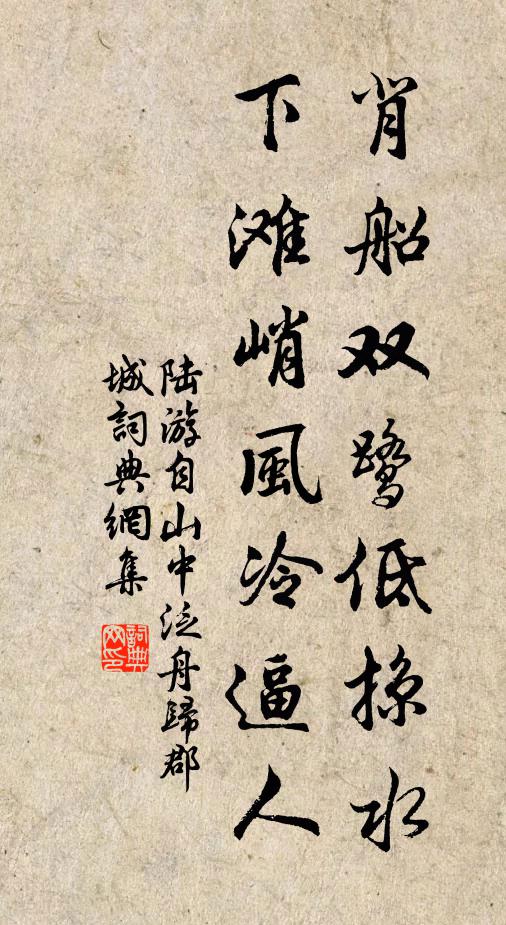 背船双鹭低掠水
下滩峭風冷逼人
陆游自山中泛舟歸郡
城詞典網集
詞典网印